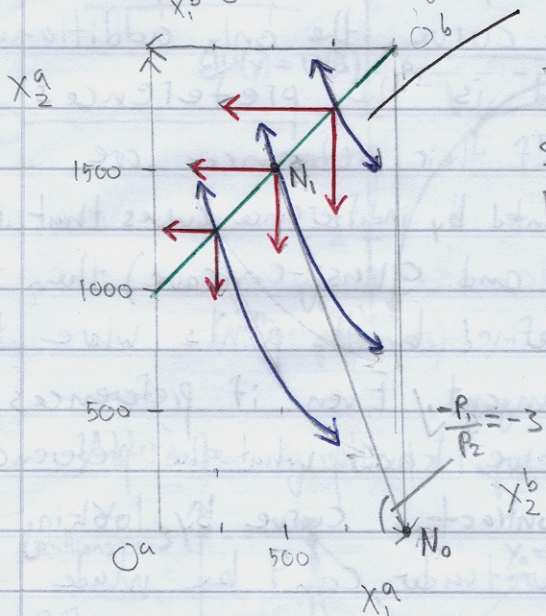 X₁ᵇ
Oᵇ
X₂ᵃ
1500
N₁
1000
500
-P₁/P₂ = -3
X₂ᵇ
Oᵃ
500
N₀
X₁ᵃ